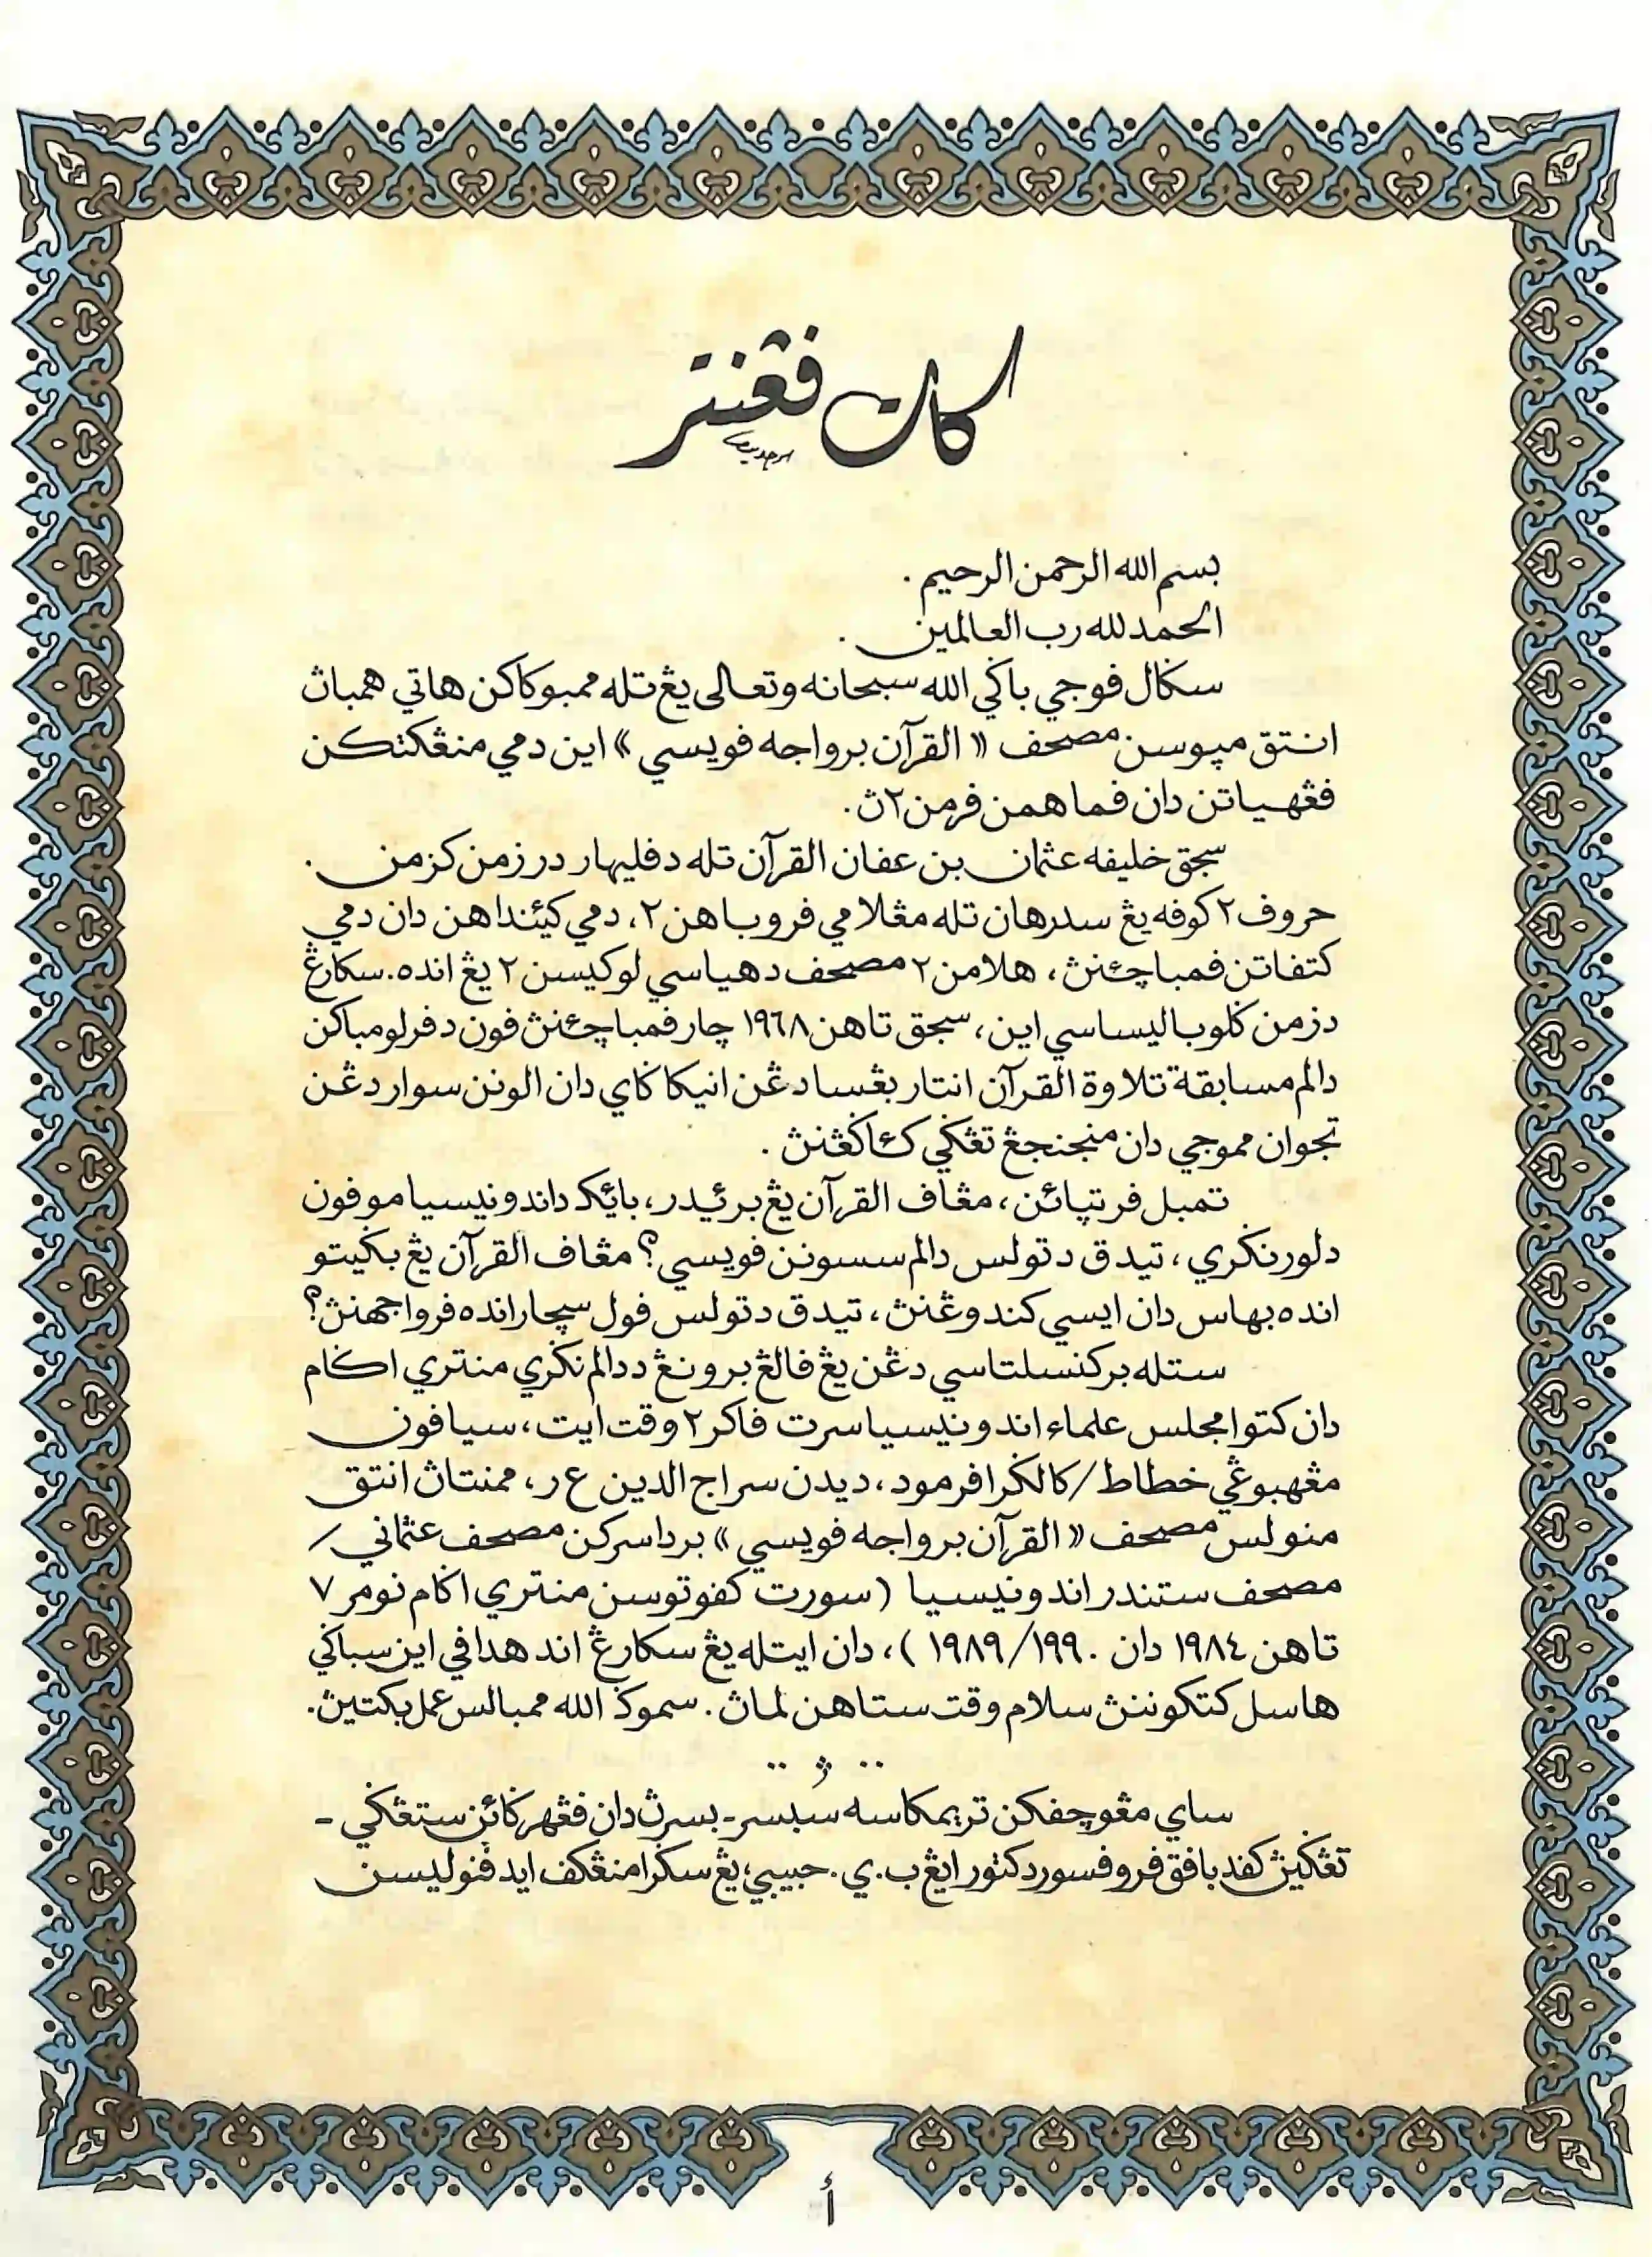 كات ڤڠنتر
بسم الله الرحمن الرحيم .
الحمد لله رب العالمين .
سݢال ڤوجي باݢي الله سبحانه وتعالى يڠ تله ممبوكاكن هاتي همباڽ
انتق مپوسن مصحف « القرآن برواجه ڤويسي » اين دمي منڠكتكن
ڤڠهياتن دان ڤماهمن فرمن٢ڽ .
سجق خليفه عثمان بن عفان القرآن تله دڤليهار در زمن كزمن .
حروف٢ كوفه يڠ سدرهان تله مڠلامي ڤروباهن٢، دمي كئينداهن دان دمي
كتڤاتن ڤمباچئنڽ ، هلامن٢ مصحف دهياسي لوكيسن٢ يڠ انده. سكارڠ
دزمن ݢلوباليساسي اين ، سجق تاهن ١٩٦٨ چار ڤمباچئنڽ ڤون دڤرلومباكن
دالم مسابقة تلاوة القرآن انتار بڠسا دڠن انيكا ݢاي دان الونن سوار دڠن
تجوان مموجي دان منجنجڠ تڠݢي كئاݢڠنڽ .
تمبل ڤرتپائن ، مڠاڤ القرآن يڠ برئيدر، بائيك د اندونيسيا موڤون
دلور نݢري ، تيدق دتولس دالم سسونن ڤويسي؟ مڠاڤ القرآن يڠ بݢيتو
انده بهاس دان ايسي كندوڠنڽ ، تيدق دتولس ڤول سچار انده ڤرواجهنڽ؟
ستله بركنسلتاسي دڠن يڠ ڤالڠ برونڠ ددالم نݢري منتري اݢام
دان كتوا مجلس علماء اندونيسيا سرت ڤاكر٢ وقت ايت ، سيا ڤون
مڠهبوڠي خطاط/كالݢرافر مود ، ديدن سراج الدين ع ر ، ممنتاڽ انتق
منولس مصحف « القرآن برواجه ڤويسي » برداسركن مصحف عثماني/
مصحف ستندر اندونيسيا (سورت كڤوتوسن منتري اݢام نومر ٧
تاهن ١٩٨٤ دان ١٩٨٩/١٩٩٠ )، دان ايتله يڠ سكارڠ اند هداڤي اين سباݢي
هاسل كتكوننڽ سلام وقت ستاهن لماڽ . سموݢ الله ممبالس عمل بكتيڽ .
ساي مڠوچڤكن تريمكاسه سبسر-بسرڽ دان ڤڠهرݢائن ستڠݢي-
تڠݢيڽ كڤد باڤق ڤروفسور دكتور ايڠ ب. ي. حبيبي، يڠ سݢرا منڠكڤ ايد ڤنوليسن
أ